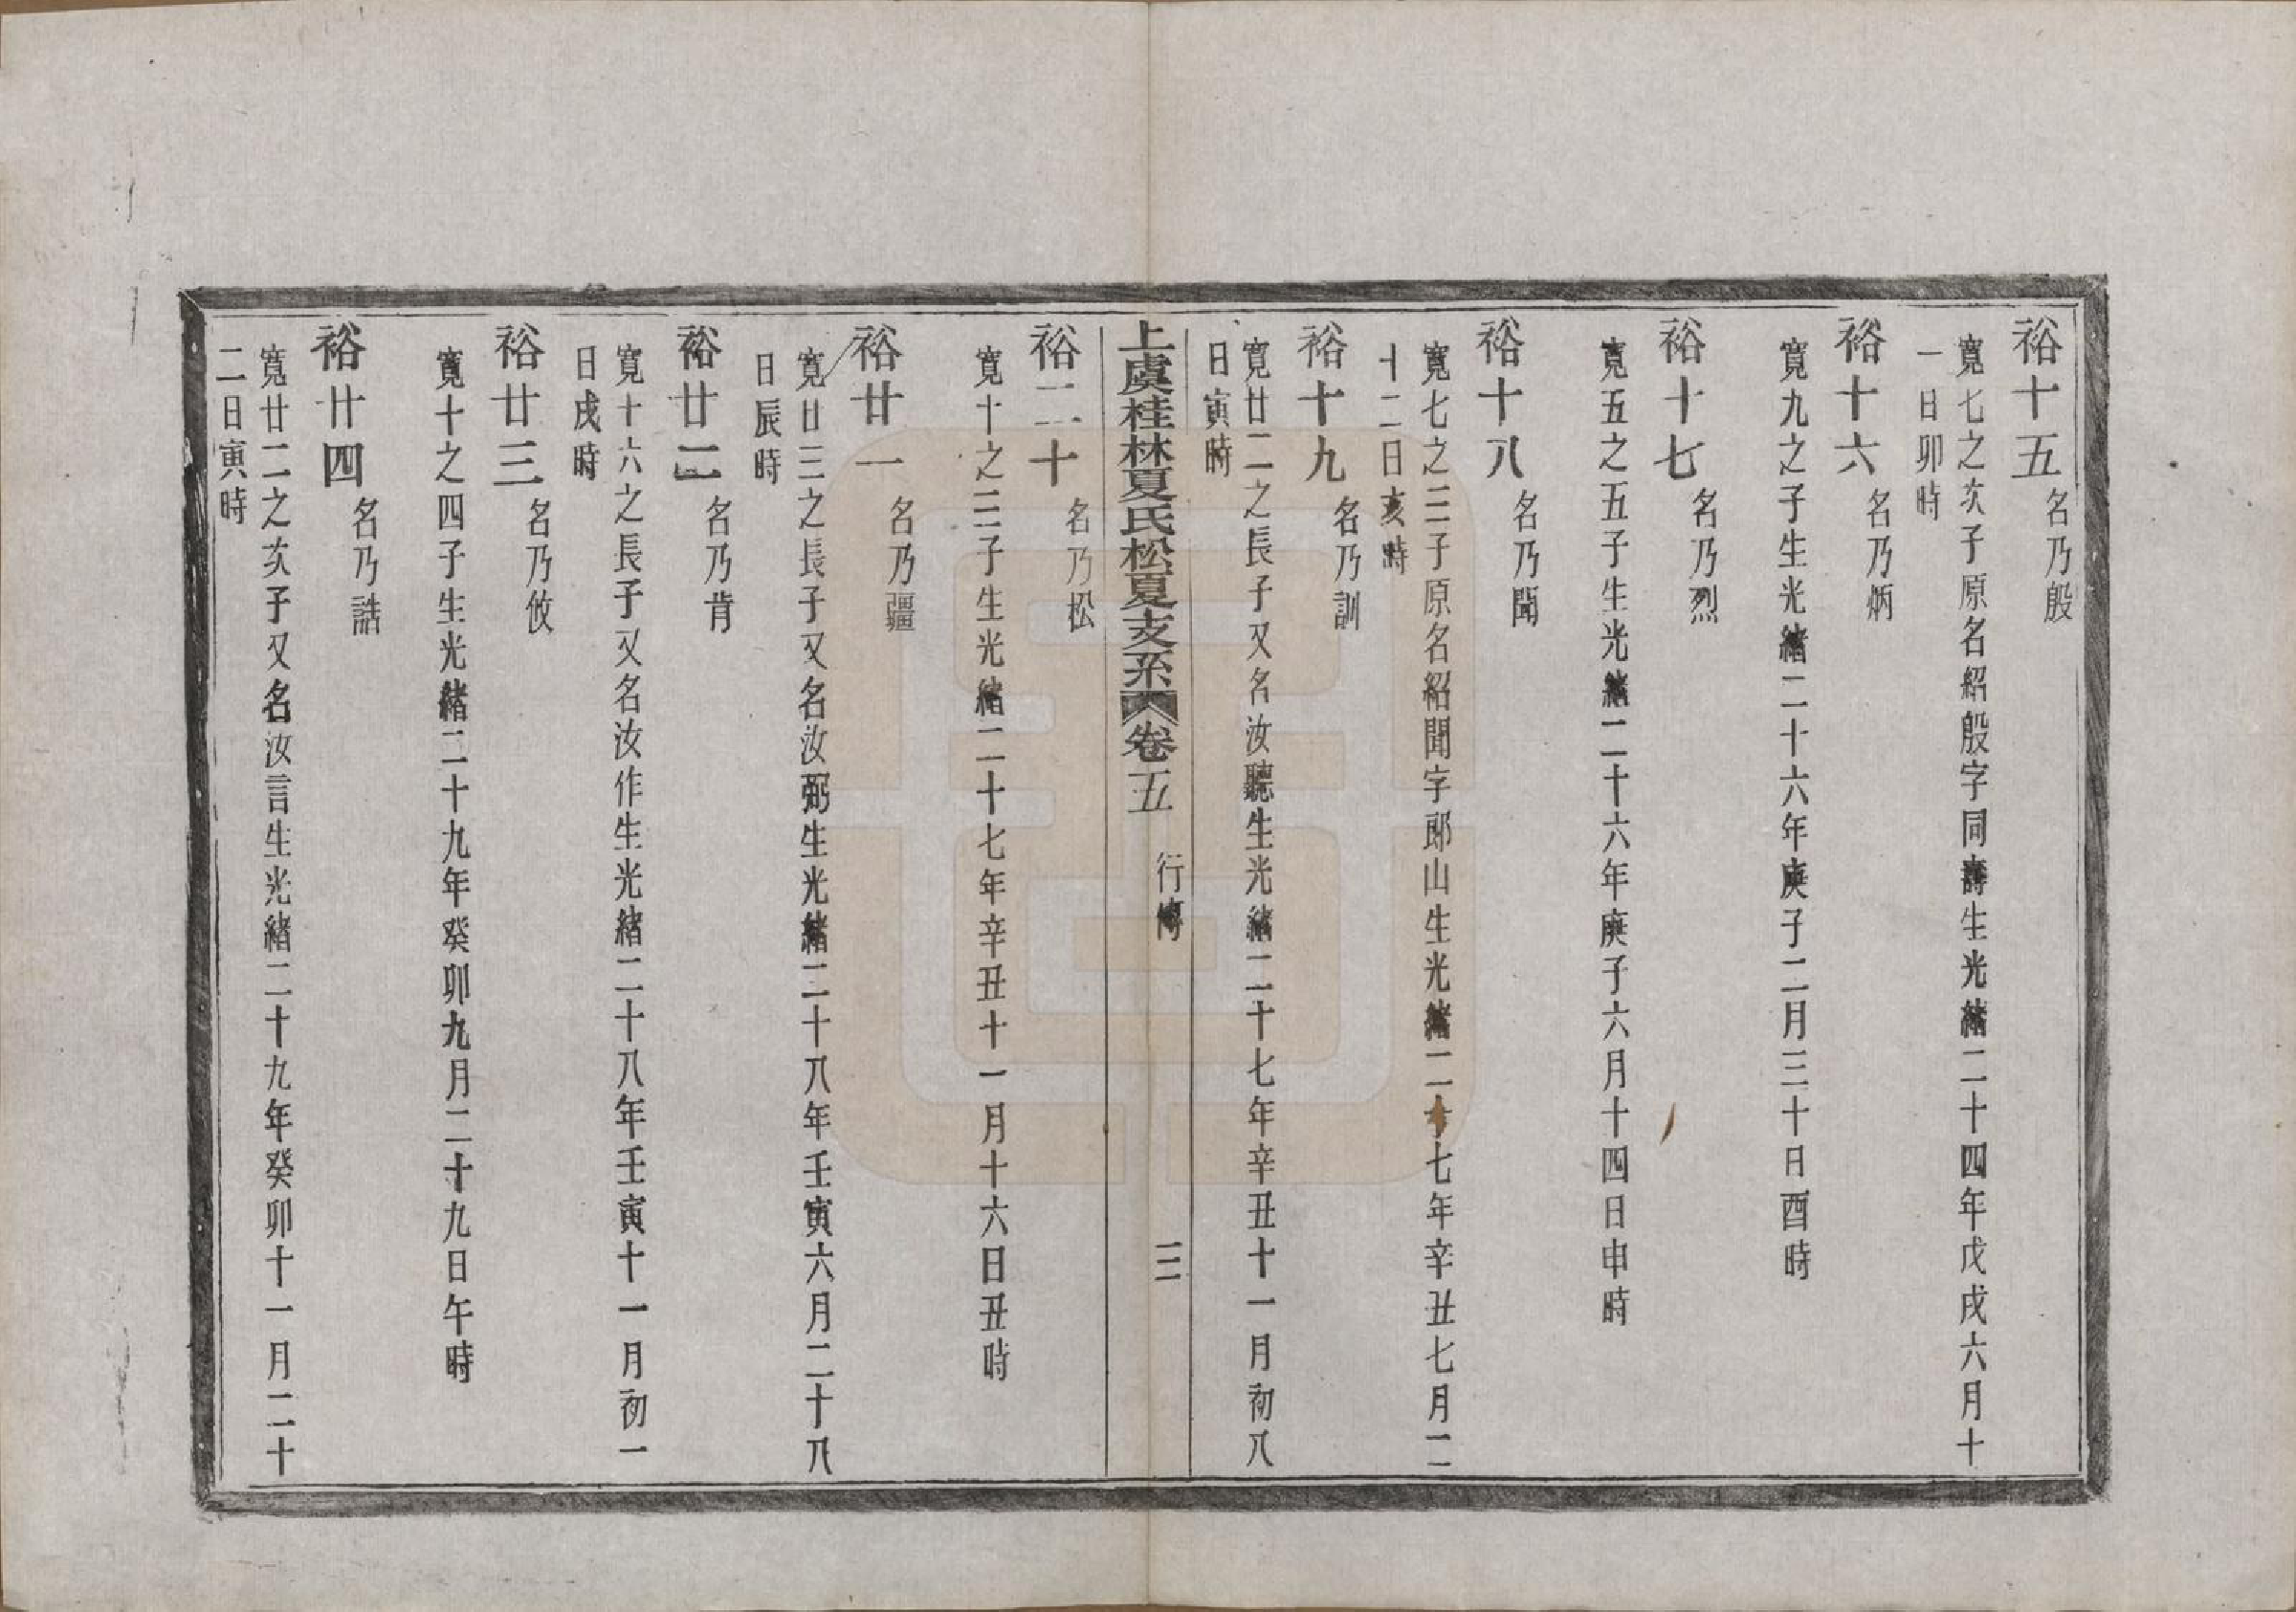 裕十五名乃殷
寬七之次子原名紹殷字同壽生光緒二十四年戊戌六月十
一日卯時
裕十六名乃炳
寬九之子生光緒二十六年庚子二月三十日酉時
裕十七名乃烈
寬五之五子生光緒二十六年庚子六月十四日申時
裕十八名乃聞
寬七之三子原名紹聞字郎山生光緒二十七年辛丑七月二
十二日亥時
裕十九名乃訓
寬廿二之長子又名汝聽生光緒二十七年辛丑十一月初八
日寅時
上虞桂林夏氏松夏支系卷五 行傳 三
裕二十名乃松
寬十之三子生光緒二十七年辛丑十一月十六日丑時
裕廿一名乃疆
寬廿三之長子又名汝弼生光緒二十八年壬寅六月二十八
日辰時
裕廿二名乃肯
寬十六之長子又名汝作生光緒二十八年壬寅十一月初一
日戌時
裕廿三名乃攸
寬十之四子生光緒二十九年癸卯九月二十九日午時
裕廿四名乃誥
寬廿二之次子又名汝言生光緒二十九年癸卯十一月二十
二日寅時